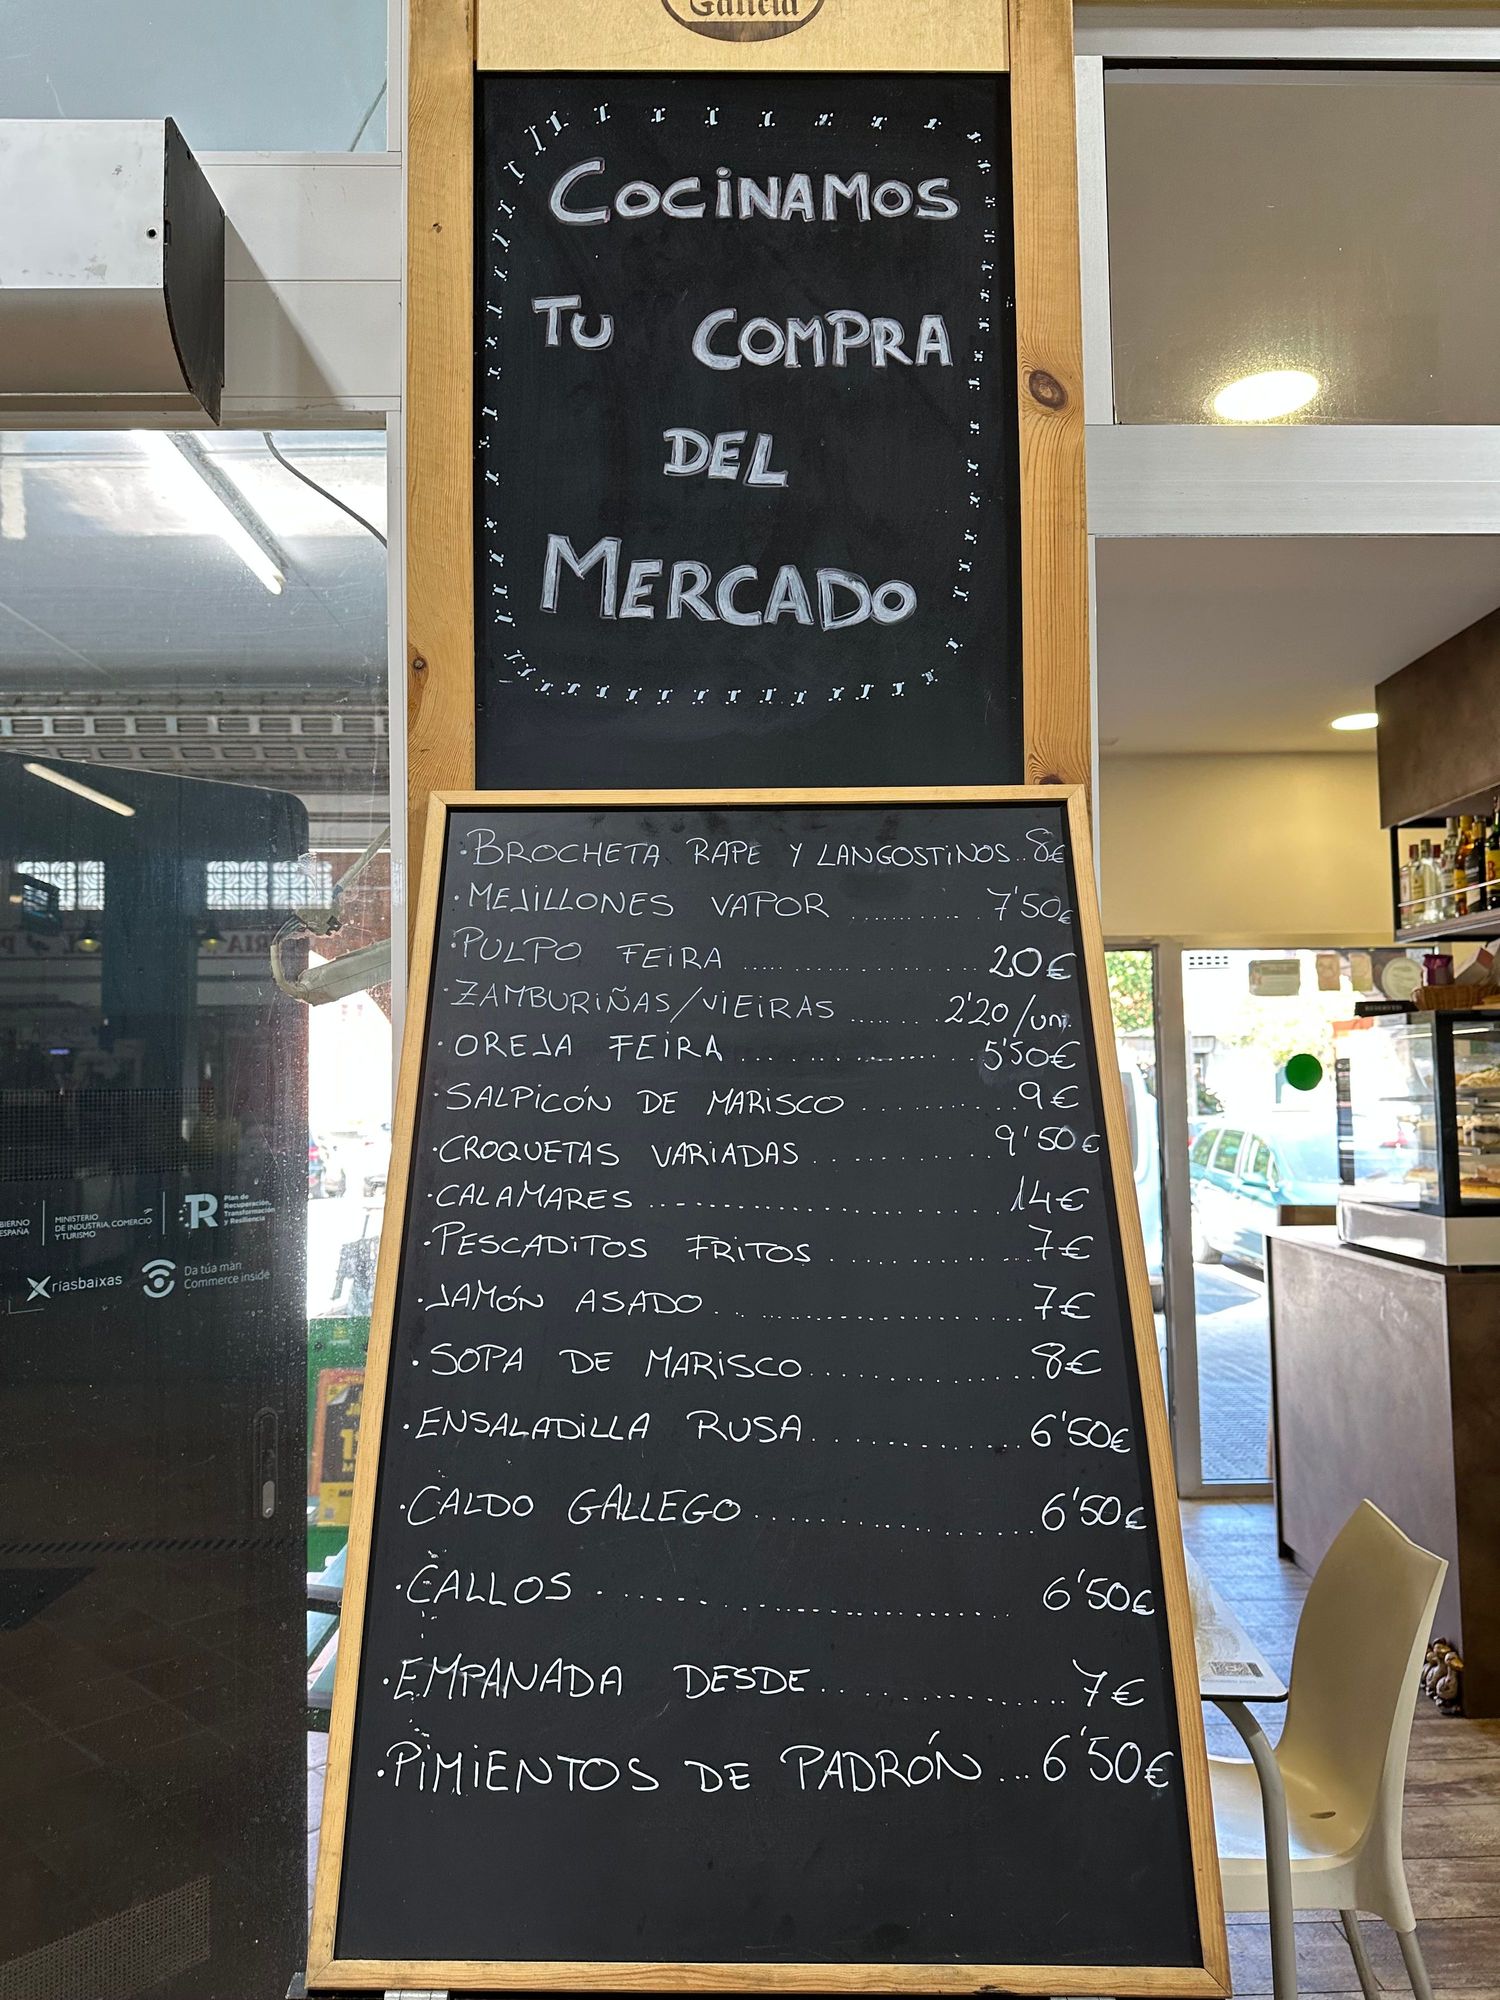 Galicia
COCINAMOS
TU COMPRA
DEL
MERCADO
·BROCHETA RAPE Y LANGOSTINOS..8€
·MEJILLONES VAPOR ............ 7'50€
·PULPO FEIRA ................ 20€
·ZAMBURIÑAS/VIEIRAS ........ 2'20/uni.
·OREJA FEIRA ................ 5'50€
·SALPICÓN DE MARISCO ............ 9€
·CROQUETAS VARIADAS ............ 9'50€
·CALAMARES ................ 14€
·PESCADITOS FRITOS ............ 7€
·JAMÓN ASADO ................ 7€
·SOPA DE MARISCO ................ 8€
·ENSALADILLA RUSA ............ 6'50€
·CALDO GALLEGO ................ 6'50€
·CALLOS ................ 6'50€
·EMPANADA DESDE ................ 7€
·PIMIENTOS DE PADRÓN...6'50€
MINISTERIO
DE INDUSTRIA, COMERCIO
Y TURISMO
Plan de
Recuperación,
Transformación
y Resiliencia
TR
ríasbaixas
Da túa man
Commerce inside